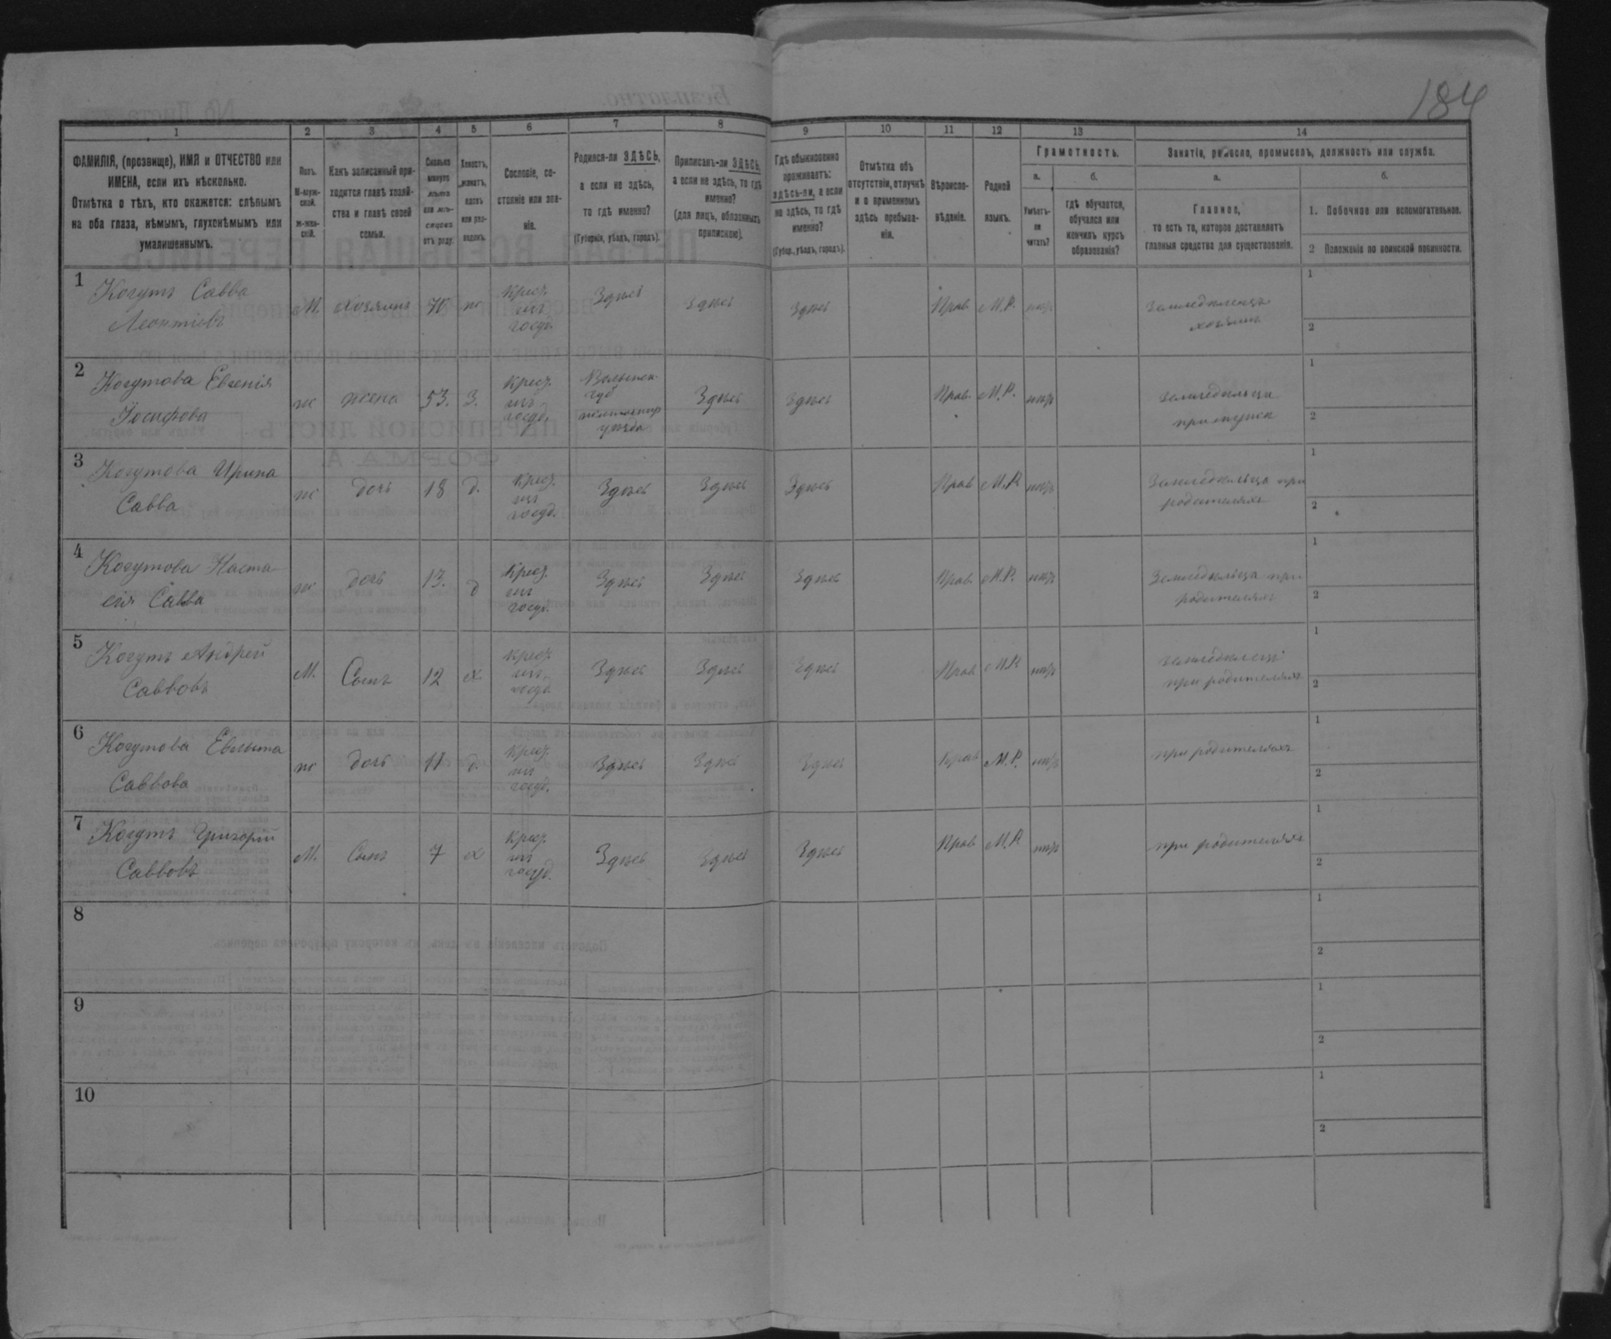 184
1
2
3
4
5
6
7
8
9
10
11
12
13
14
ФАМИЛІЯ, (прозвище), ИМЯ и ОТЧЕСТВО или
ИМЕНА, если ихъ нѣсколько.
Отмѣтка о тѣхъ, кто окажется: слѣпымъ
на оба глаза, нѣмымъ, глухонѣмымъ или
умалишеннымъ.
Полъ.
М-муж-
ской.
ж-жен-
скій.
Какъ записанный при-
ходится главѣ хозяй-
ства и главѣ своей
семьи.
Сколько
минуло
лѣтъ
или мѣ-
сяцевъ
отъ роду.
Холостъ,
женатъ,
вдовъ
или раз-
веденъ.
Сословіе, со-
стояніе или зва-
ніе.
Родился-ли ЗДѢСЬ,
а если не здѣсь,
то гдѣ именно?
(Губернія, уѣздъ, городъ).
Приписанъ-ли ЗДѢСЬ,
а если не здѣсь, то гдѣ
именно?
(для лицъ, обязанныхъ
припискою).
Гдѣ обыкновенно
проживаетъ:
здѣсь-ли, а если
не здѣсь, то гдѣ
именно?
(Губер., уѣздъ, городъ).
Отмѣтка объ
отсутствіи, отлучкѣ
и о временномъ
здѣсь пребыва-
ніи.
Вѣроиспо-
вѣданіе.
Родной
языкъ.
Грамотность.
а.
б.
Умѣетъ-
ли
читать?
гдѣ обучается,
обучался или
кончилъ курсъ
образованія?
Занятіе, ремесло, промыселъ, должность или служба.
а.
б.
Главное,
то есть то, которое доставляетъ
главныя средства для существованія.
1. Побочное или вспомогательное.
2 Положеніе по воинской повинности.
1
Когутъ Савва
Леонтіевъ
М.
хозяинъ
Крес.
изъ
госуд.
Здѣсь
Здѣсь
Здѣсь
Прав
М.Р.
Земледѣлецъ
хозяинъ
1
2
2
Когутова Евгенія
Іосифова
ж
жена
53.
З.
Крес.
изъ
госуд.
Волынск.
губ
житомир
уѣзда
Здѣсь
Здѣсь
Прав
М.Р.
Земледѣлица
при мужѣ
1
2
3
Когутова Ирина
Савва
ж
дочь
18
д.
Крес.
изъ
госуд.
Здѣсь
Здѣсь
Здѣсь
Прав
М.Р.
Земледѣлица при
родителяхъ
1
2
4
Когутова Наста-
сія Савва
ж
дочь
13.
д
Крес.
изъ
госуд.
Здѣсь
Здѣсь
Здѣсь
Прав
М.Р.
Земледѣлица при
родителяхъ
1
2
5
Когутъ Андрей
Саввовъ
М.
Сынъ
12
х
Крес.
изъ
госуд.
Здѣсь
Здѣсь
Здѣсь
Прав
М.Р.
земледѣлецъ
при родителяхъ
1
2
6
Когутова
Саввова
ж
дочь
11
д.
Крес.
изъ
госуд.
Здѣсь
Здѣсь
Здѣсь
Прав
М.Р.
при родителяхъ
1
2
7
Когутъ Григорій
Саввовъ
М.
Сынъ
7
х
Крес.
изъ
госуд.
Здѣсь
Здѣсь
Здѣсь
Прав
М.Р.
при родителяхъ
1
2
8
1
2
9
1
2
10
1
2